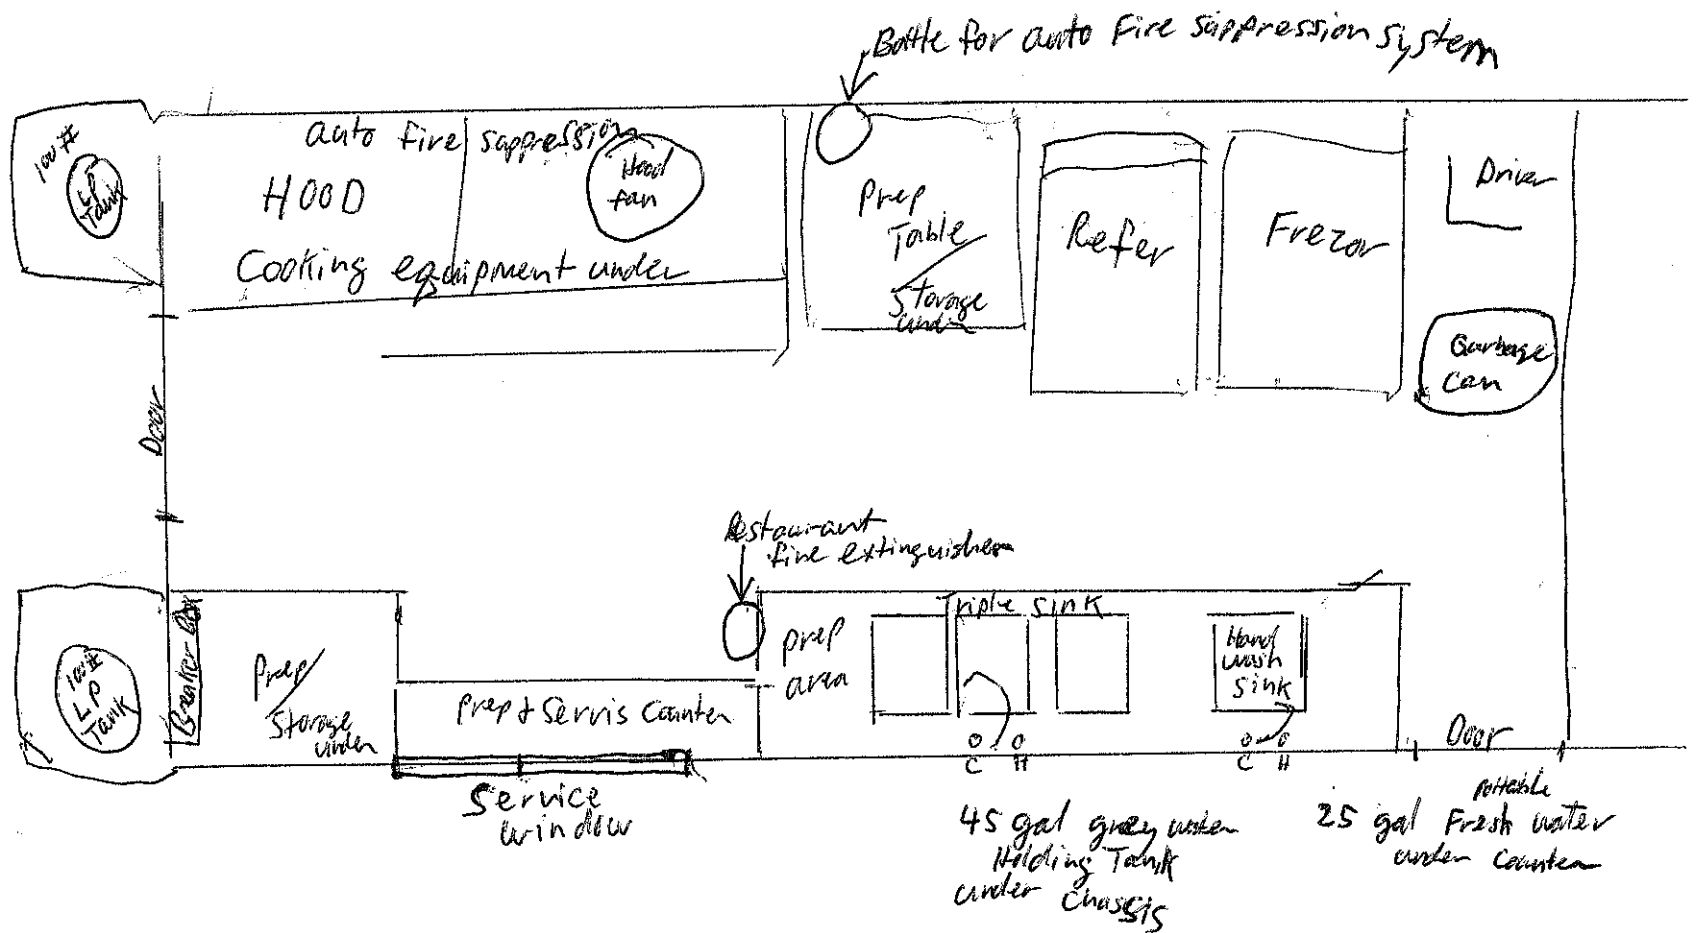 Bottle for auto Fire sappression system
100#
LP
Tank
auto fire sappression
HOOD
Hood
fan
Cooking equipment under
Prep
Table/
Storage
under
Refer
Frezor
Driver
Garbage
Can
Door
Restaurant
fire extinguisher
100#
LP
Tank
Breaker Box
Prep/
Storage
under
Prep & Servis Counter
prep
area
Triple Sink
Hand
wash
Sink
C H
C H
Door
Service
window
45 gal grey water
Holding Tank
under Chassis
pottable
25 gal Fresh water
under Counter